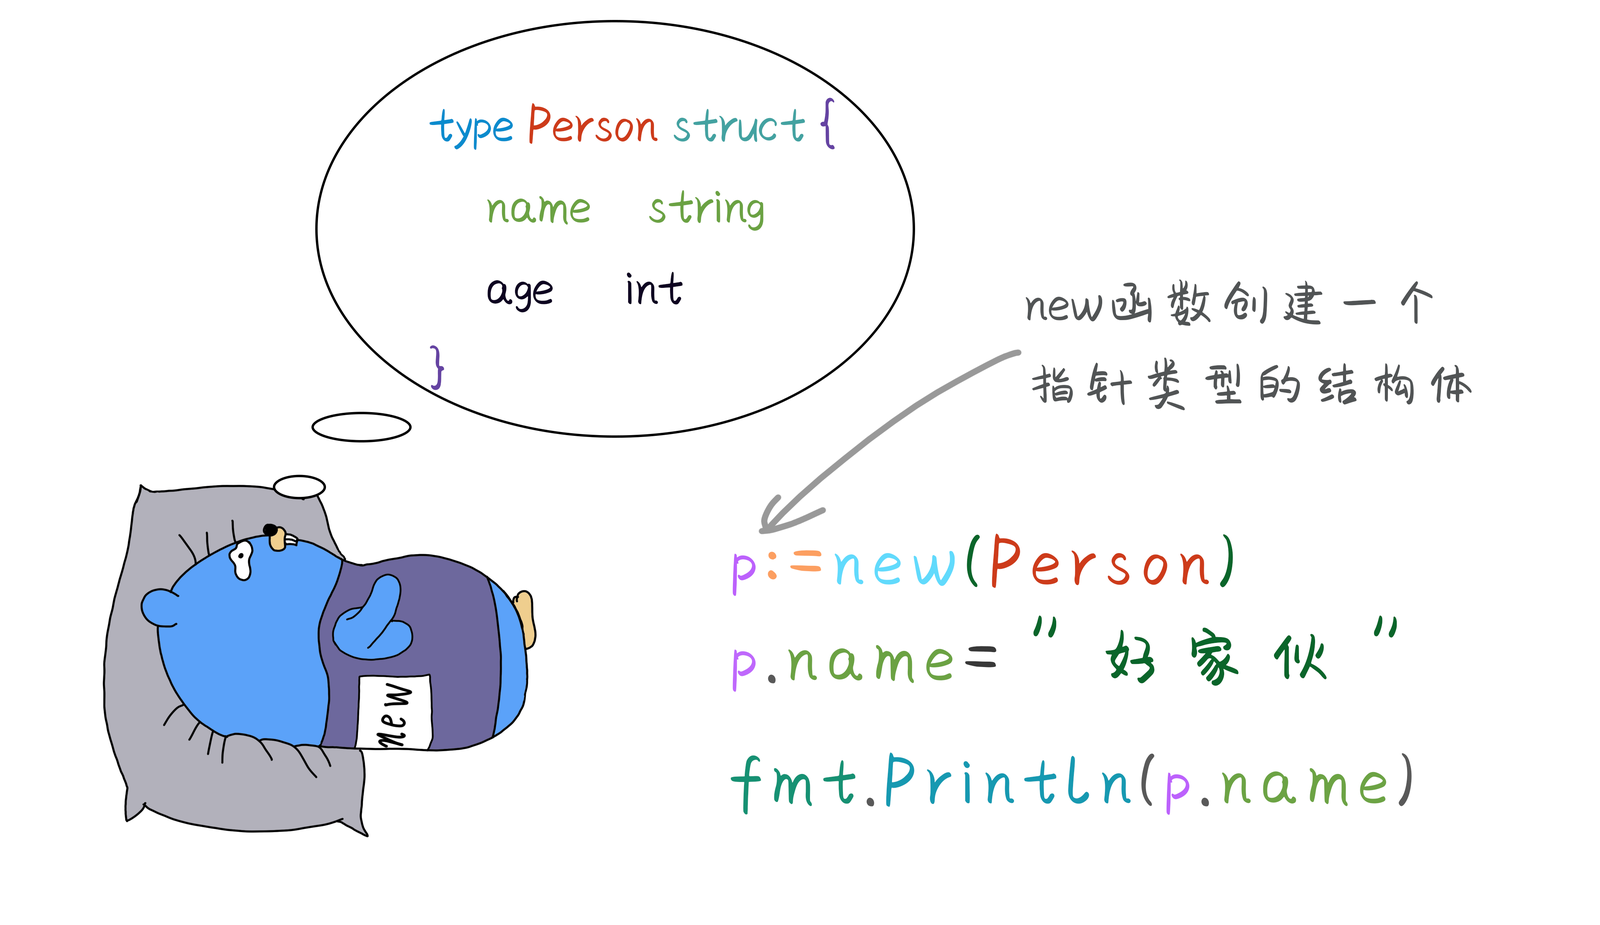 type Person struct {
name string
age int
}
new函数创建一个
指针类型的结构体
p:=new(Person)
p.name="好家伙"
fmt.Println(p.name)
new